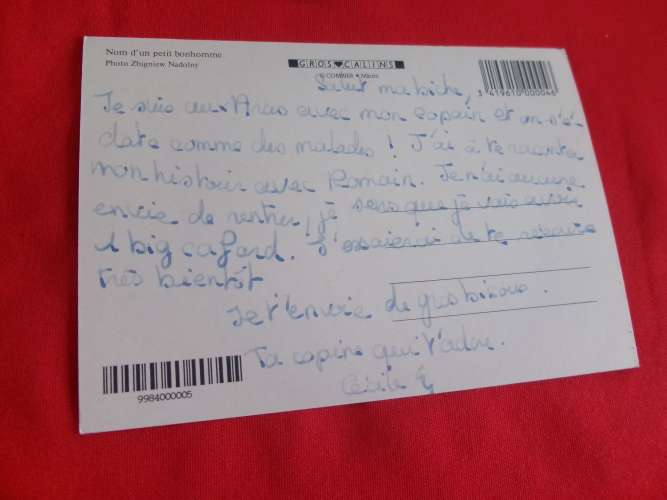 Nom d'un petit bonhomme
Photo Zbigniew Nadolny
GROS CALINS
© COMBIER • Mâcon
3 419610 000046
Salut ma biche,
Je suis aux Arcs avec mon copain et on s'é-
clate comme des malades ! J'ai à te raconter
mon histoire avec Romain. Je n'ai aucune
envie de rentrer, je sens que je vais avoir
1 big cafard. J'essaierai de te
très bientôt
Je t'envoie de gros bisous.
Ta copine qui t'adore.
Cécile
9984000005